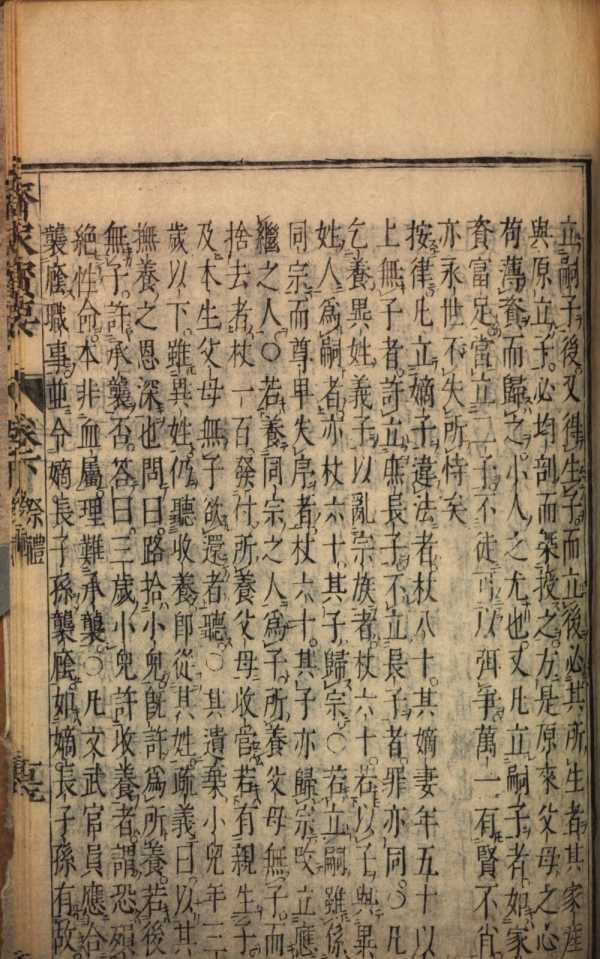 立嗣子後又得生子而立後必其所生者其家產
與原立子必均剖而槩授之方是原來父母之心
苟薄資而歸之小人之尤也又凡立嗣子者如家
資富足當立二子不徒可以弭爭萬一有賢不肖
亦永世不失所恃矣
按律凡立嫡子違法者杖八十其嫡妻年五十以
上無子者許立庶長子不立長子者罪亦同○凡
乞養異姓義子以亂宗族者杖六十若以子與異
姓人爲嗣者亦杖六十其子歸宗○若立嗣雖係
同宗而尊卑失序者杖六十其子亦歸宗改立應
繼之人○若養同宗之人爲子所養父母無子而
捨去者杖一百發付所養父母收管若有親生子
及本生父母無子欲還者聽○其遺棄小兒年三
歲以下雖異姓仍聽收養卽從其姓疏義曰以其
撫養之恩深也問曰路拾小兒旣許爲所養若後
無子許承襲否答曰三歲小兒許收養者謂恐殞
絶性命本非血屬理難承襲○凡文武官員應合
襲廕職事並令嫡長子孫襲廕如嫡長子孫有故
齊家寶要 卷下 祭禮